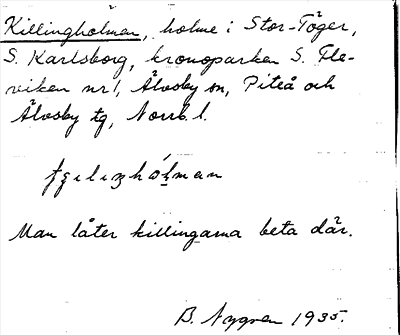 Killingholmen, holme i Stor-Töger,
S. Karlsborg, kronoparken S. Fle-
viken nr 1, Älvsby sn, Piteå och
Älvsby tg, Norrb. l.
Man låter killingarna beta där.
B. Nygren 1935.